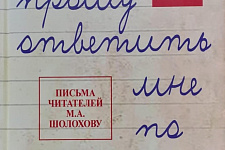 прошу
ответить
мне
по
ПИСЬМА
ЧИТАТЕЛЕЙ
М.А.
ШОЛОХОВУ